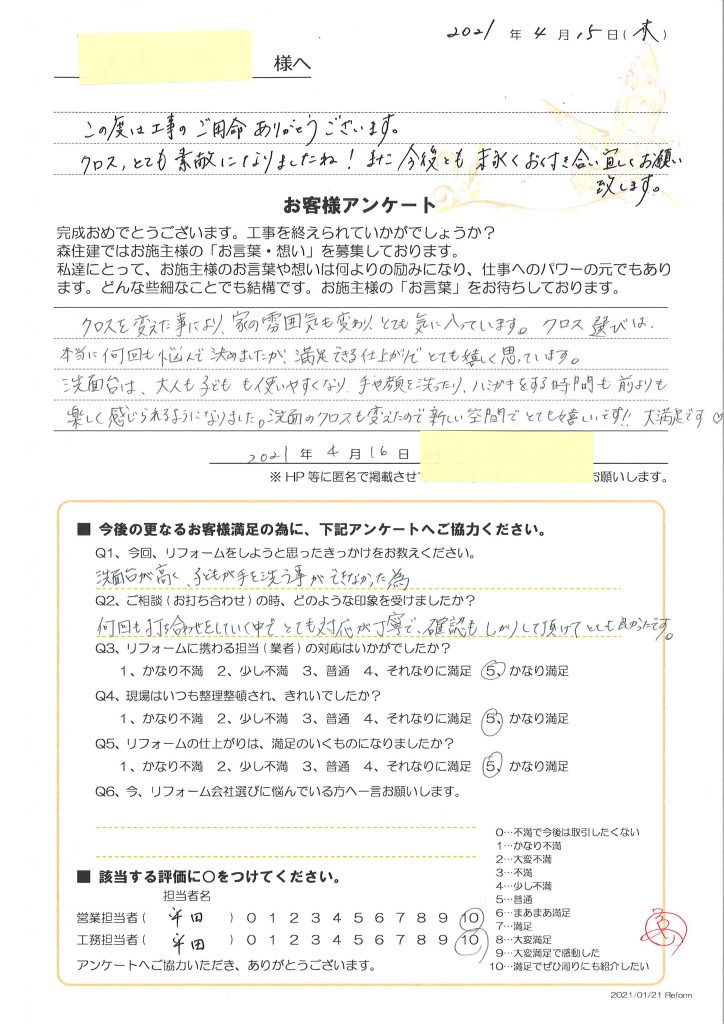 2021 年 4 月 15 日(木)
様へ
この度は工事のご用命ありがとうございます。
クロス、とても素敵になりましたね！また今後とも末永くおつき合い宜しくお願い
致します。
お客様アンケート
完成おめでとうございます。工事を終えられていかがでしょうか？
森住建ではお施主様の「お言葉・想い」を募集しております。
私達にとって、お施主様のお言葉や想いは何よりの励みになり、仕事へのパワーの元でもあり
ます。どんな些細なことでも結構です。お施主様の「お言葉」をお待ちしております。
クロスを変えた事により、家の雰囲気も変わり、とても気に入っています。クロス選びは、
本当に何回も悩んで決めましたが、満足できる仕上がりでとても嬉しく思っています。
洗面台は、大人も子どもも使いやすくなり、手や顔を洗ったり、ハミガキをする時間も前よりも
楽しく感じられるようになりました。洗面のクロスも変えたので新しい空間でとても嬉しいです!! 大満足です♡
2021 年 4 月 16 日
※HP 等に匿名で掲載させ お願いします。
■ 今後の更なるお客様満足の為に、下記アンケートへご協力ください。
Q1、今回、リフォームをしようと思ったきっかけをお教えください。
洗面台が高く、子どもが手を洗う事ができなかった為
Q2、ご相談(お打ち合わせ)の時、どのような印象を受けましたか？
何回も打ち合わせをしていく中で、とても対応が丁寧で、確認もしっかりして頂けてとても良かったです。
Q3、リフォームに携わる担当(業者)の対応はいかがでしたか？
1、かなり不満 2、少し不満 3、普通 4、それなりに満足 5、かなり満足
Q4、現場はいつも整理整頓され、きれいでしたか？
1、かなり不満 2、少し不満 3、普通 4、それなりに満足 5、かなり満足
Q5、リフォームの仕上がりは、満足のいくものになりましたか？
1、かなり不満 2、少し不満 3、普通 4、それなりに満足 5、かなり満足
Q6、今、リフォーム会社選びに悩んでいる方へ一言お願いします。
0…不満で今後は取引したくない
1…かなり不満
2…大変不満
3…不満
4…少し不満
5…普通
6…まあまあ満足
7…満足
8…大変満足
9…大変満足で感動した
10…満足でぜひ周りにも紹介したい
■ 該当する評価に○をつけてください。
担当者名
営業担当者( 平田 ) 0 1 2 3 4 5 6 7 8 9 10
工務担当者( 平田 ) 0 1 2 3 4 5 6 7 8 9 10
アンケートへご協力いただき、ありがとうございます。
2021/01/21 Reform